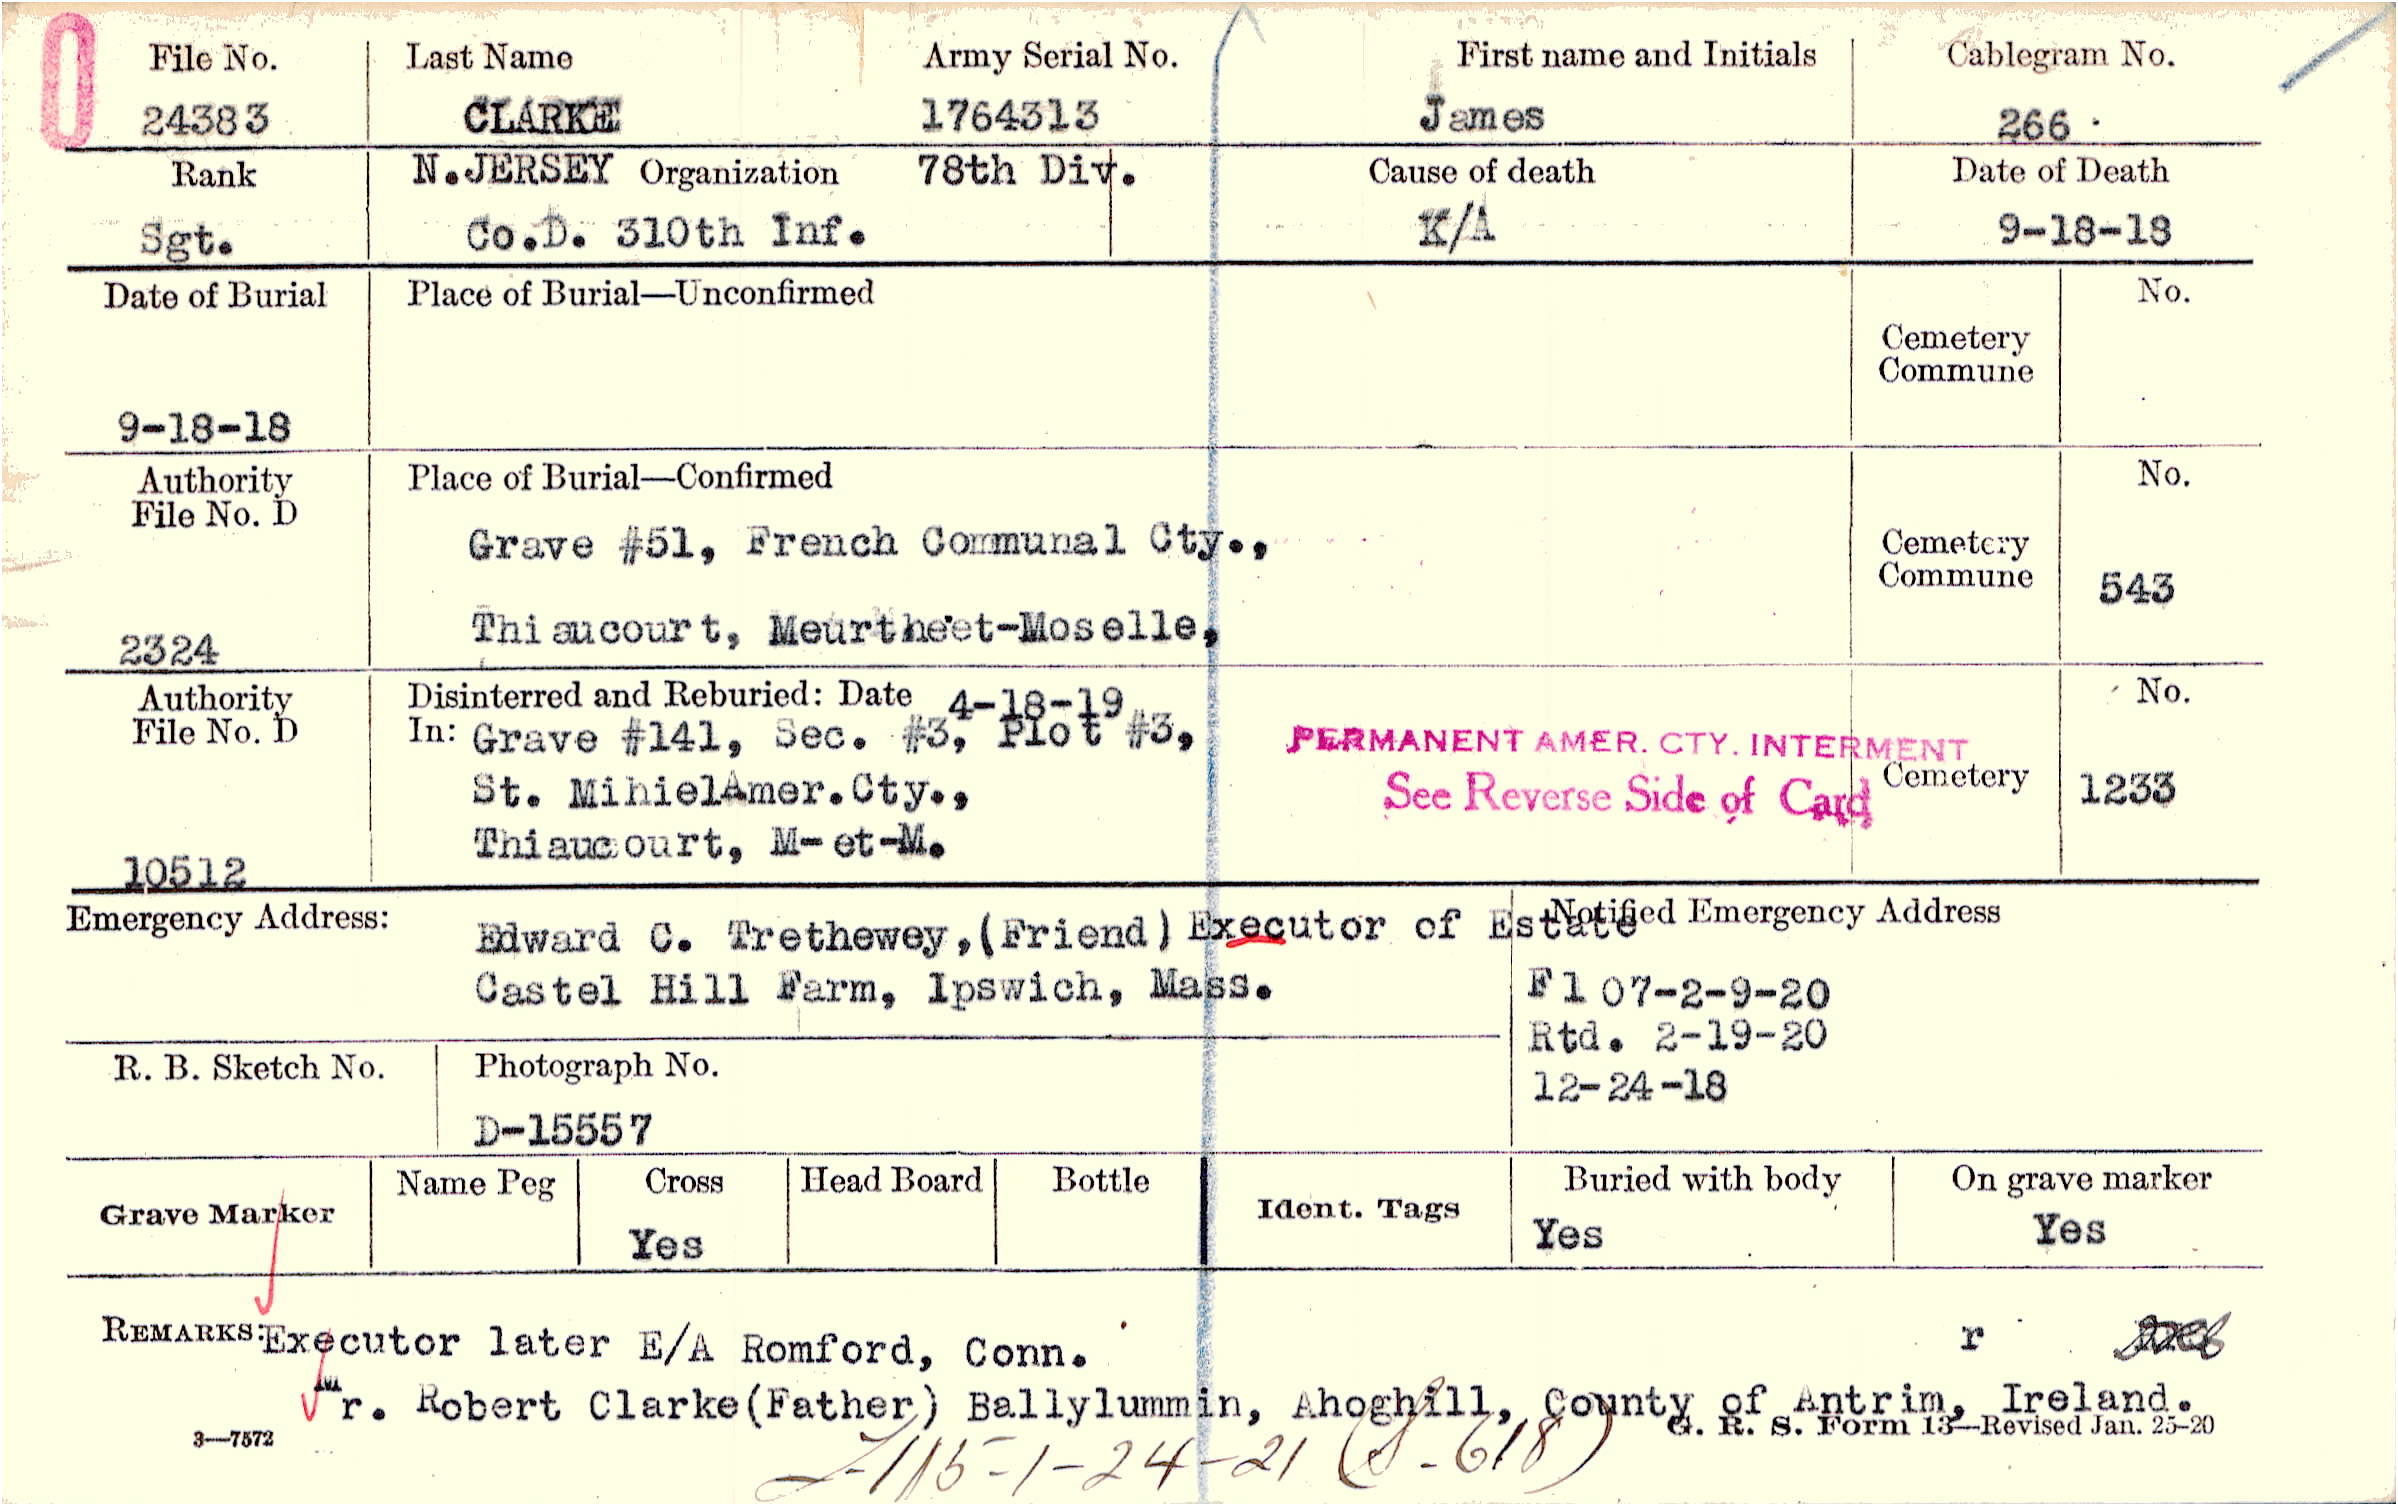 File No. Last Name Army Serial No. First name and Initials Cablegram No.
24383 CLARKE 1764313 James 266
Rank N.JERSEY Organization 78th Div. Cause of death Date of Death
Sgt. Co.D. 310th Inf. K/A 9-18-18
Date of Burial Place of Burial—Unconfirmed No.
Cemetery
Commune
9-18-18
Authority Place of Burial—Confirmed No.
File No. D
Grave #51, French Communal Cty., Cemetery
Commune 543
Thiaucourt, Meurthe et-Moselle,
2324
Authority Disinterred and Reburied: Date 4-18-19 No.
File No. D In: Grave #141, Sec. #3, Plot #3,
PERMANENT AMER. CTY. INTERMENT
St. Mihiel Amer.Cty., See Reverse Side of Card Cemetery 1233
Thiaucourt, M-et-M.
10512
Emergency Address: Edward C. Trethewey,(Friend) Executor of Estate Notified Emergency Address
Castel Hill Farm, Ipswich, Mass. F1 07-2-9-20
Rtd. 2-19-20
R. B. Sketch No. Photograph No. 12-24-18
D-15557
Grave Marker Name Peg Cross Head Board Bottle Ident. Tags Buried with body On grave marker
Yes Yes Yes
REMARKS: Executor later E/A Romford, Conn. r
Mr. Robert Clarke(Father) Ballylummin, Ahoghill, County of Antrim, Ireland.
3—7572 G. R. S. Form 13—Revised Jan. 25-20
-115-1-24-21 ( -618)